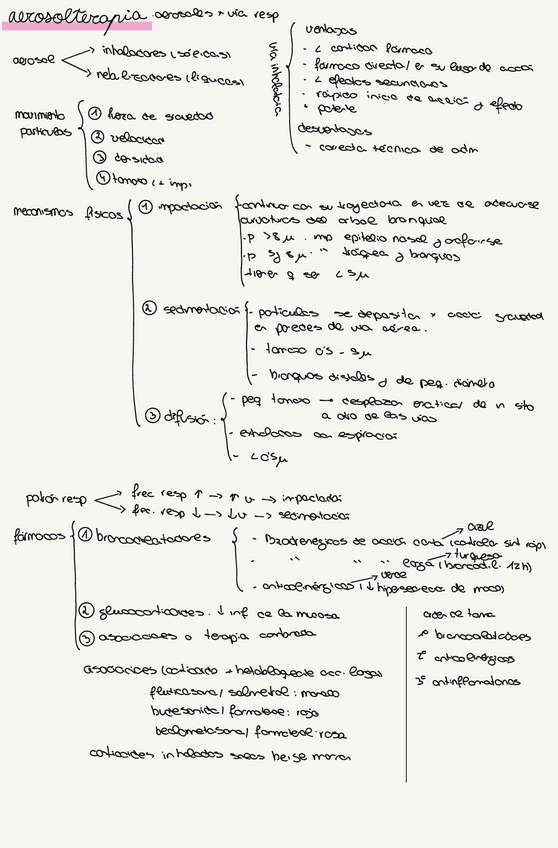 aerosolterapia. aerosoles x via resp
aerosol
inhaladores (sólidos)
nebulizadores (líquidos)
vía inhalatoria
ventajas
- < cantidad fármaco
- fármaco directa/ en su lugar de acción
- < efectos secundarios
- rápido inicio de acción y efecto
potente
desventajas
- correcta técnica de adm
movimiento
partículas
① fuerza de gravedad
② velocidad
③ densidad
④ tamaño (+ imp)
mecanismos físicos
① impactación
continuar con su trayectoria en vez de adecuarse
curvaturas del árbol bronquial
- p >8μ. imp epitelio nasal y orofaringe
- p 5y8μ. " tráquea y bronquios
- tienen q ser <5μ
② sedimentación
- partículas se depositan x acción gravedad
en paredes de vía aérea.
- tamaño 0'5 - 5μ
- bronquios distales y de peq. diámetro
③ difusión:
- peq tamaño → desplazan errática/ de un sitio
a otro de las vías
- exhaladas con espiración
- <0'5μ
patrón resp
frec resp ↑ → ↑ v → impactación
frec. resp ↓ → ↓v → sedimentación
fármacos
① broncodilatadores
- B2adrenérgicos de acción corta (controla sint ráp)
azul
- " " " larga (broncodil. 12h)
turquesa
- anticolinérgicos (↓ hipersecrec de moco)
verde
② glucocorticoides. ↓ inf de la mucosa
③ asociaciones o terapia combinada
asociaciones (corticoide + betabloqueante acc. larga)
fluticasona/ salmeterol: morado
budesonida/ formoterol: rojo
beclometasona/ formoterol: rosa
corticoides inhalados solos beige marrón
orden de toma
1º broncodilatadores
2º anticolinérgicos
3º antiinflamatorios